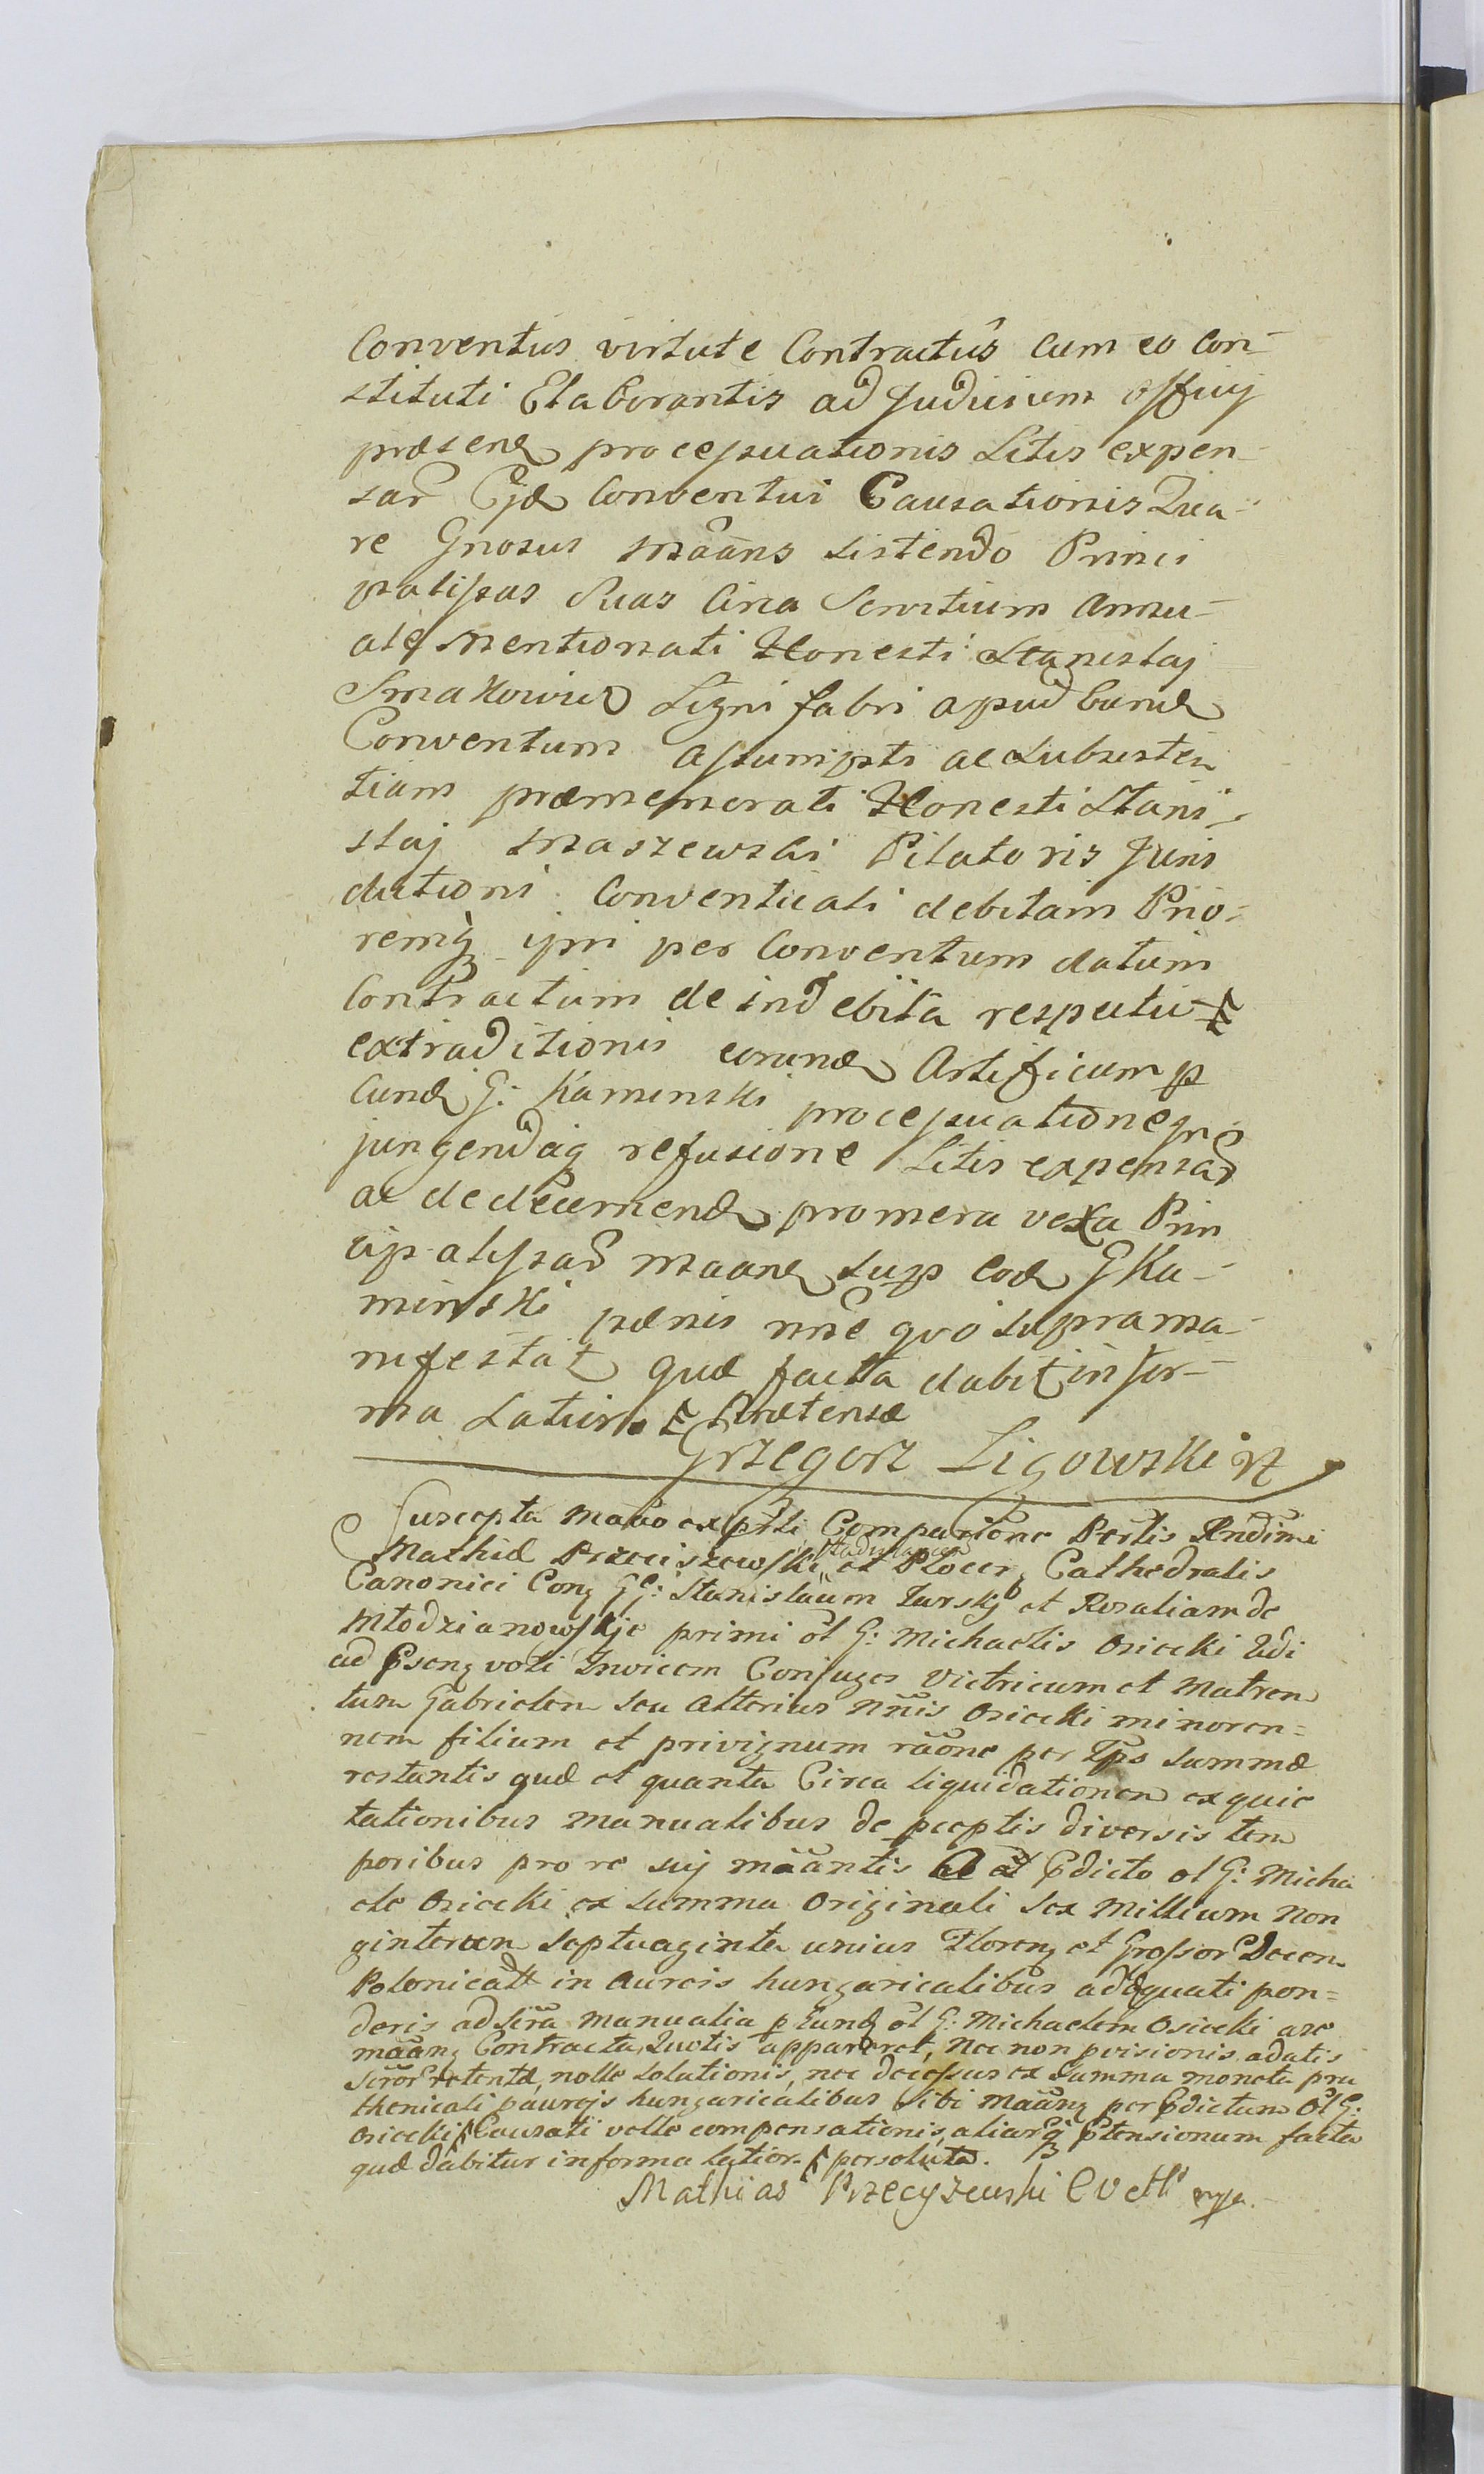 Conventus virtute Contractûs cum eo Con-
stituti Elaborantis ad Judicium Officij
præsend processuationis Litis expen-
sar̃ Ejd Conventui Causationis Qua-
re Gnosus Mãans sistendo Princi
palissas Suas Circa Servitium Annu-
ale Mentionati Honesti Stanislaj
Smakowicz Ligni fabri apud eund
Conventum Assumpti ac Subsisten
tiam præmemorati Honesti Stani-
slaj Maszewski Pilatoris Juris
dictioni Conventicali debitam Prio-
remq ipsi per Conventum datum
Contractum de indebita respective
extraditionis eorund Artificum p
Cund G: Kaminski processuatione
jungendaq refusione Litis expensar̃
ac de decernend pro mera vexa Prin
cipalissar̃ Maane sup eod G Ka-
minski pænis nñe quo supra ma-
nifestat quæ facta dabit in for-
ma Latiori Prætense
Grzegorz Ligowski
Suscepta Mañõ ex pñti Comparitione Pertis Rndimi
Mathiæ Przeciszewski et Plocen Cathedralis
Canonici Conq GG: Stanislaum Turskj et Rosaliam de
Młodzianowskje primi ol G: Michaelis Osiecki Tdi
ad Psenq voti Invicem Conjuges Victricum et Matren
tum Gabrielem seu Alterius Nñis Osiecki minoren=
nem filium et privignum rãone per Ips Summæ
restantis quæ et quanta Circa liquidationem ex quie
tationibus Manualibus de pceptis diversis tem
poribus pro re suj mãantis A ol Edicto ol G: Micha
ele Osiecki ex Summa Originali Sex Millium Non
gintorum Septuaginta unius Floren et Grossor Decem
Polonicall in Aureis hungaricalibus adæquati pon=
deris ad sera Manualia p Eund ol G: Michaelem Osiecki are
mãanq Contracta, Quotis appareret, Nec non pvisionis adatis
Seror retentæ, nolle Solutionis, nec decessus ex Summa moneta pru
thenicali paurejs hungaricalibus Sibi Maanq per Edictum Ol G:
Osiecki Causati velle compensationis, aliarq Ptensionum facta
quæ dabitur in forma latiori persoluta.
Mathias Przecyszewski